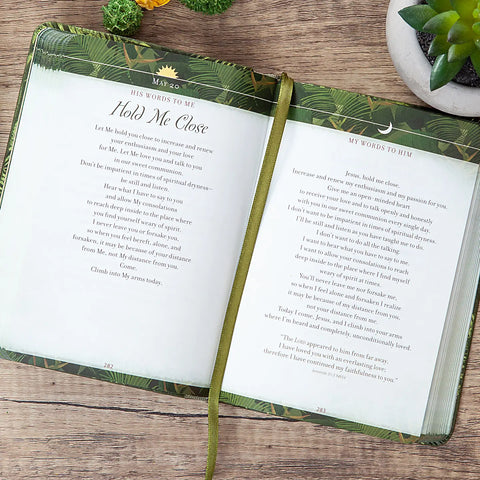 May 20
HIS WORDS TO ME
Hold Me Close
Let Me hold you close to increase and renew
your enthusiasm and your love
for Me. Let Me love you and talk to you
in our sweet communion.
Don't be impatient in times of spiritual dryness—
be still and listen.
Hear what I have to say to you
and allow My consolations
to reach deep inside to the place where
you find yourself weary of spirit.
I never leave you or forsake you,
so when you feel bereft, alone, and
forsaken, it may be because of your distance
from Me, not My distance from you.
Come.
Climb into My arms today.
282
MY WORDS TO HIM
Jesus, hold me close.
Increase and renew my enthusiasm and my passion for you.
Give me an open-minded heart
to receive your love and to talk openly and honestly
with you in our sweet communion every single day.
I don't want to be impatient in times of spiritual dryness.
I'll be still and listen as you have taught me to do.
I don't want to do all the talking.
I want to hear what you have to say to me.
I want to allow your consolations to reach
deep inside to the place where I find myself
weary of spirit at times.
You'll never leave me nor forsake me,
so when I feel alone and forsaken I realize
it may be because of my distance from you,
not your distance from me.
Today I come, Jesus, and I climb into your arms
where I'm heard and completely, unconditionally loved.
"The Lord appeared to him from far away.
I have loved you with an everlasting love;
therefore I have continued my faithfulness to you."
283